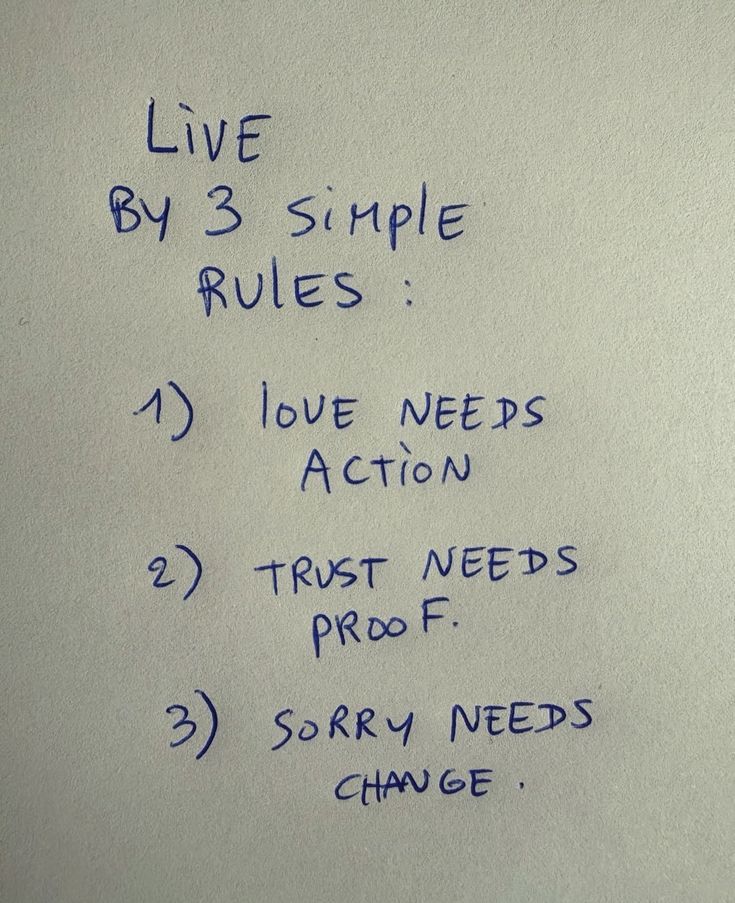 LiVE
BY 3 SiMPlE
RUlES :
1) lOVE NEEDS
ACTiON
2) TRUST NEEDS
PROOF.
3) SORRY NEEDS
CHANGE .